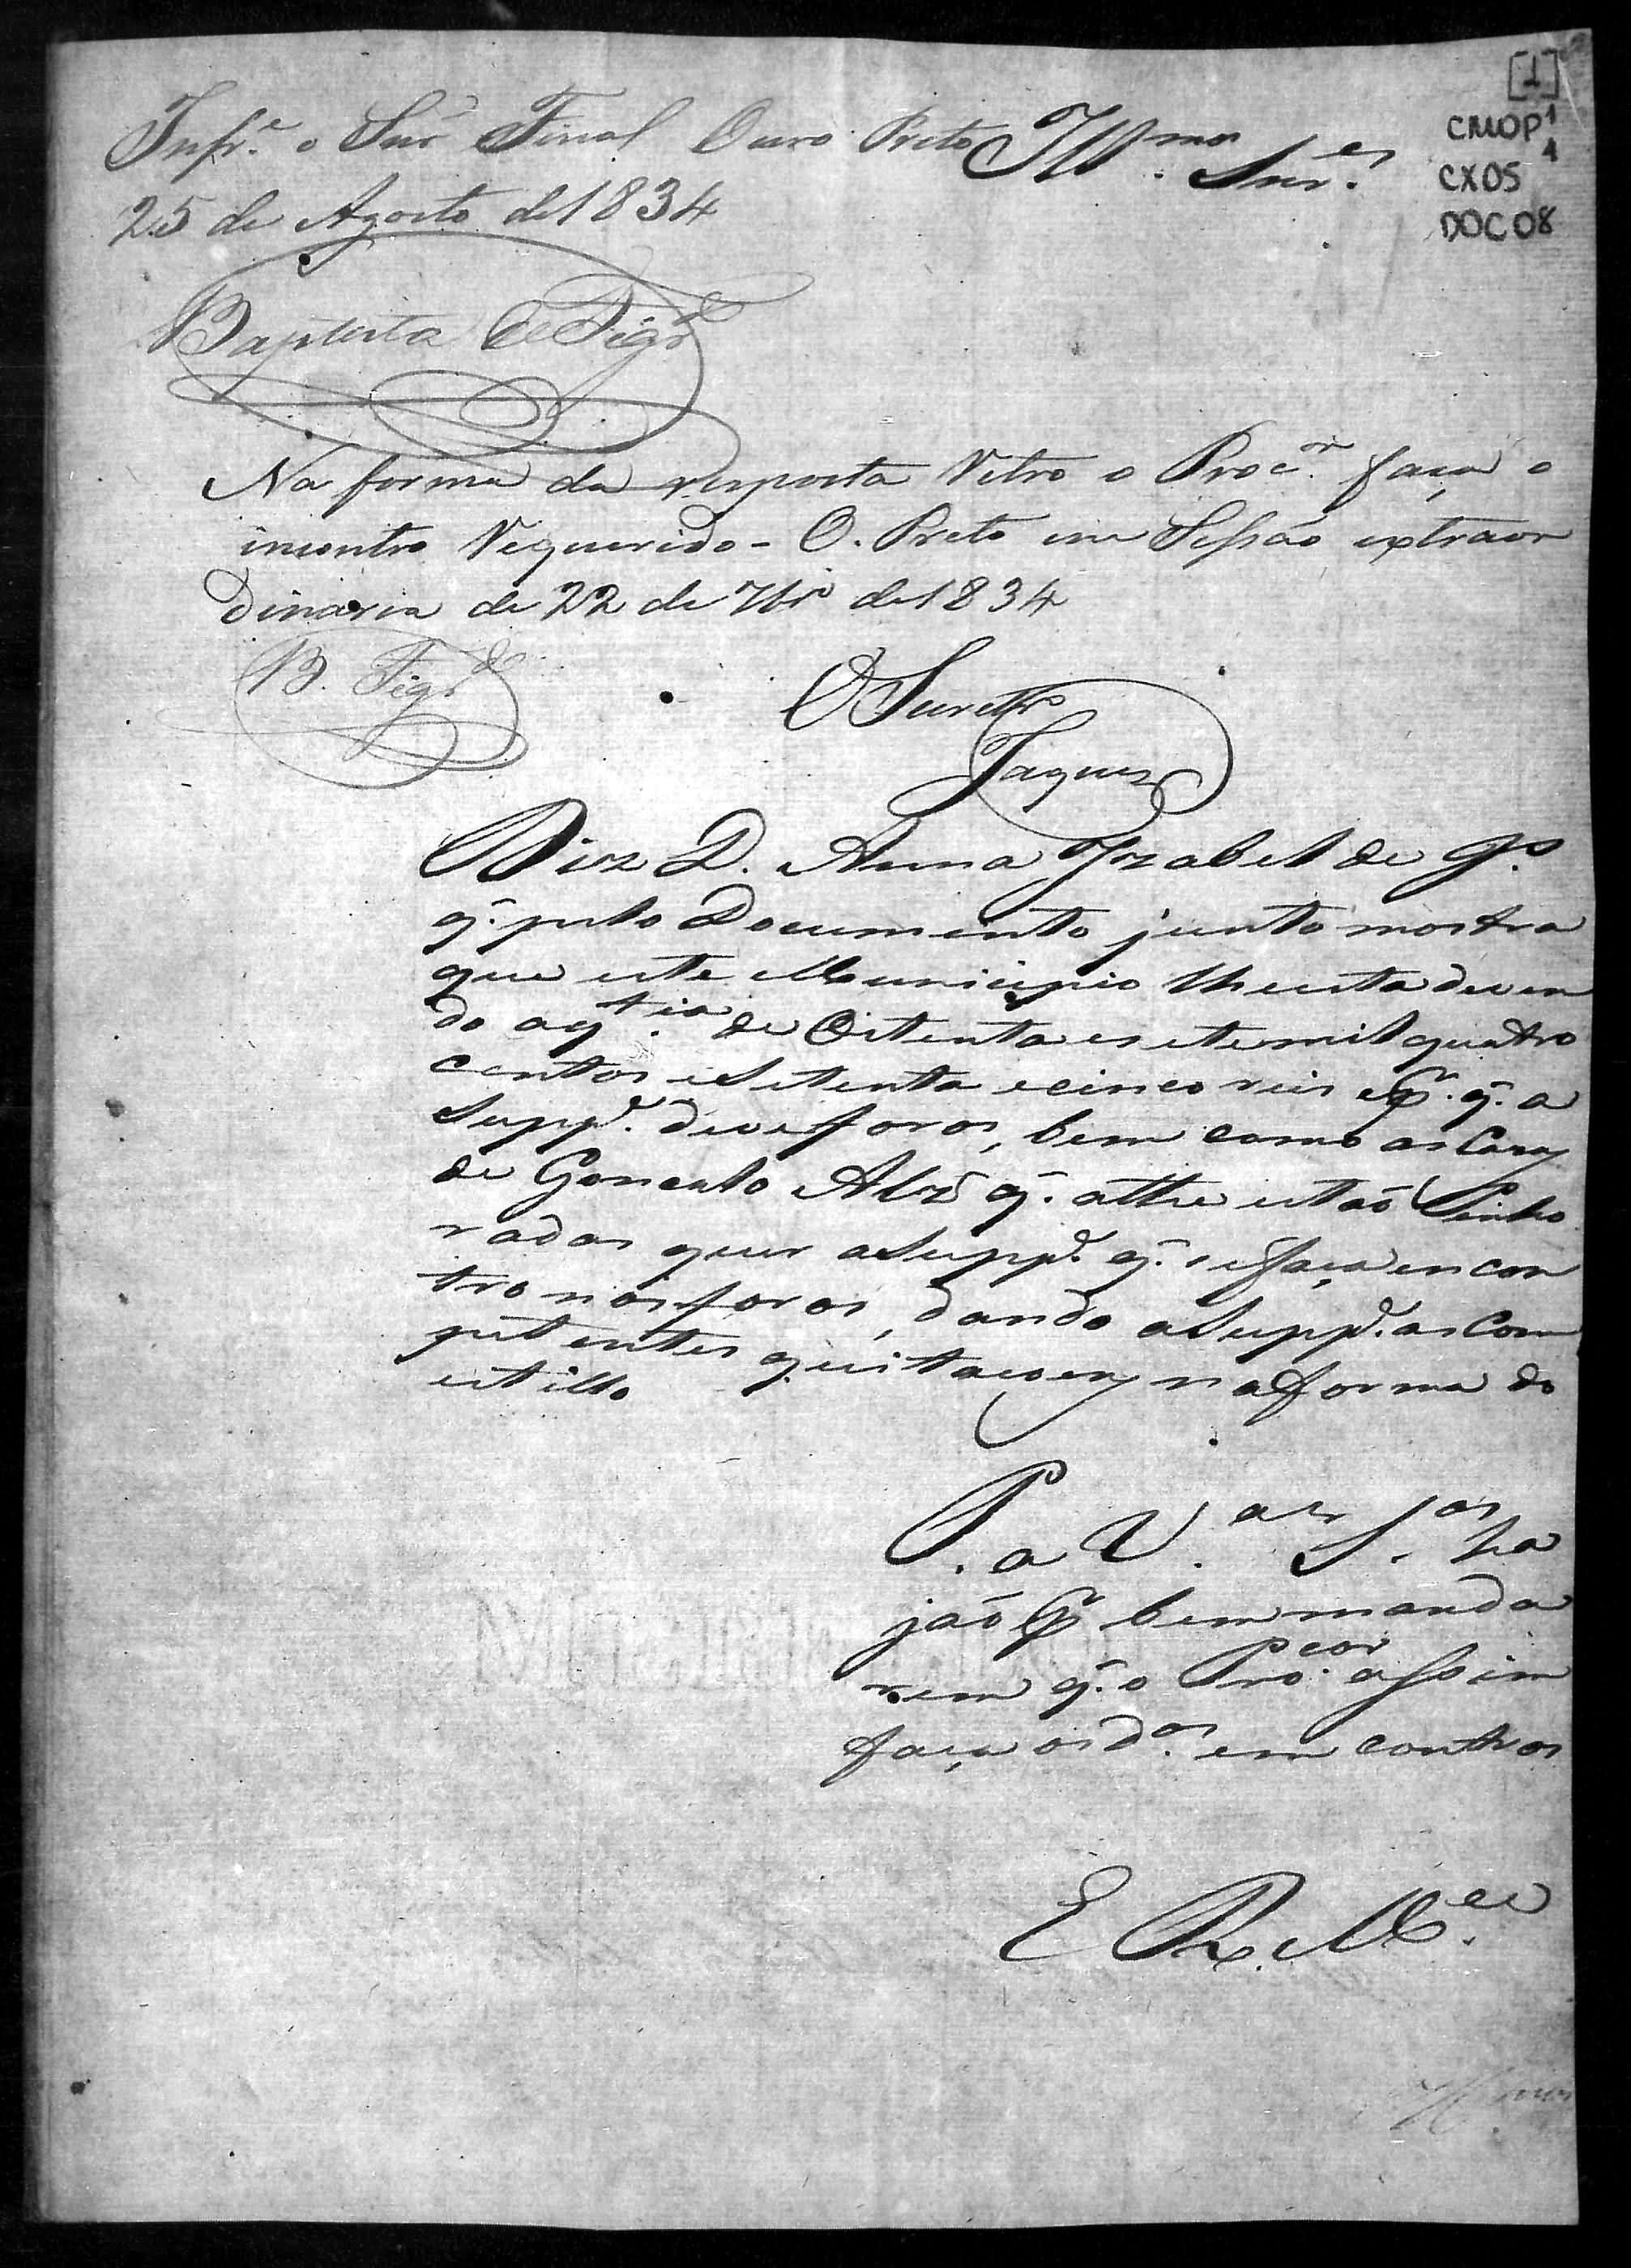 [1]
CMOP 1
4
CX05
DOC 08
Inf.e o Snr Fiscal Ouro Preto
25 de Agosto de 1834
Ill.mos Snr.es
Baptista Figd.o
Na forma da resposta retro o Proc.r faça o
incontro requerido - O. Preto em Sessão extraor
dinaria de 22 de 7br.o de 1834
B. Figd.o
O Secretr.o
Jaques
Diz D. Anna Izabel de
q. pelo Documento junto mostra
que este Municipio lhe esta deven
do a q.tia de Oitenta e sete mil quatro
centos e Setenta e cinco reis e p.r q. a
Supp.e deve foros, bem como as Cazas
de Goncalo Alz q. athe estaõ Penho
radas quer a Supp.e q. se faça encon
tro nos foros, dando a Supp.e as Com
petentes quitacoens na forma do
estillo
P. a V.as S.as ha
jaõ p.r bem manda
rem q. o Pro.cor assim
faça os d.os em contros
E R. M.ce